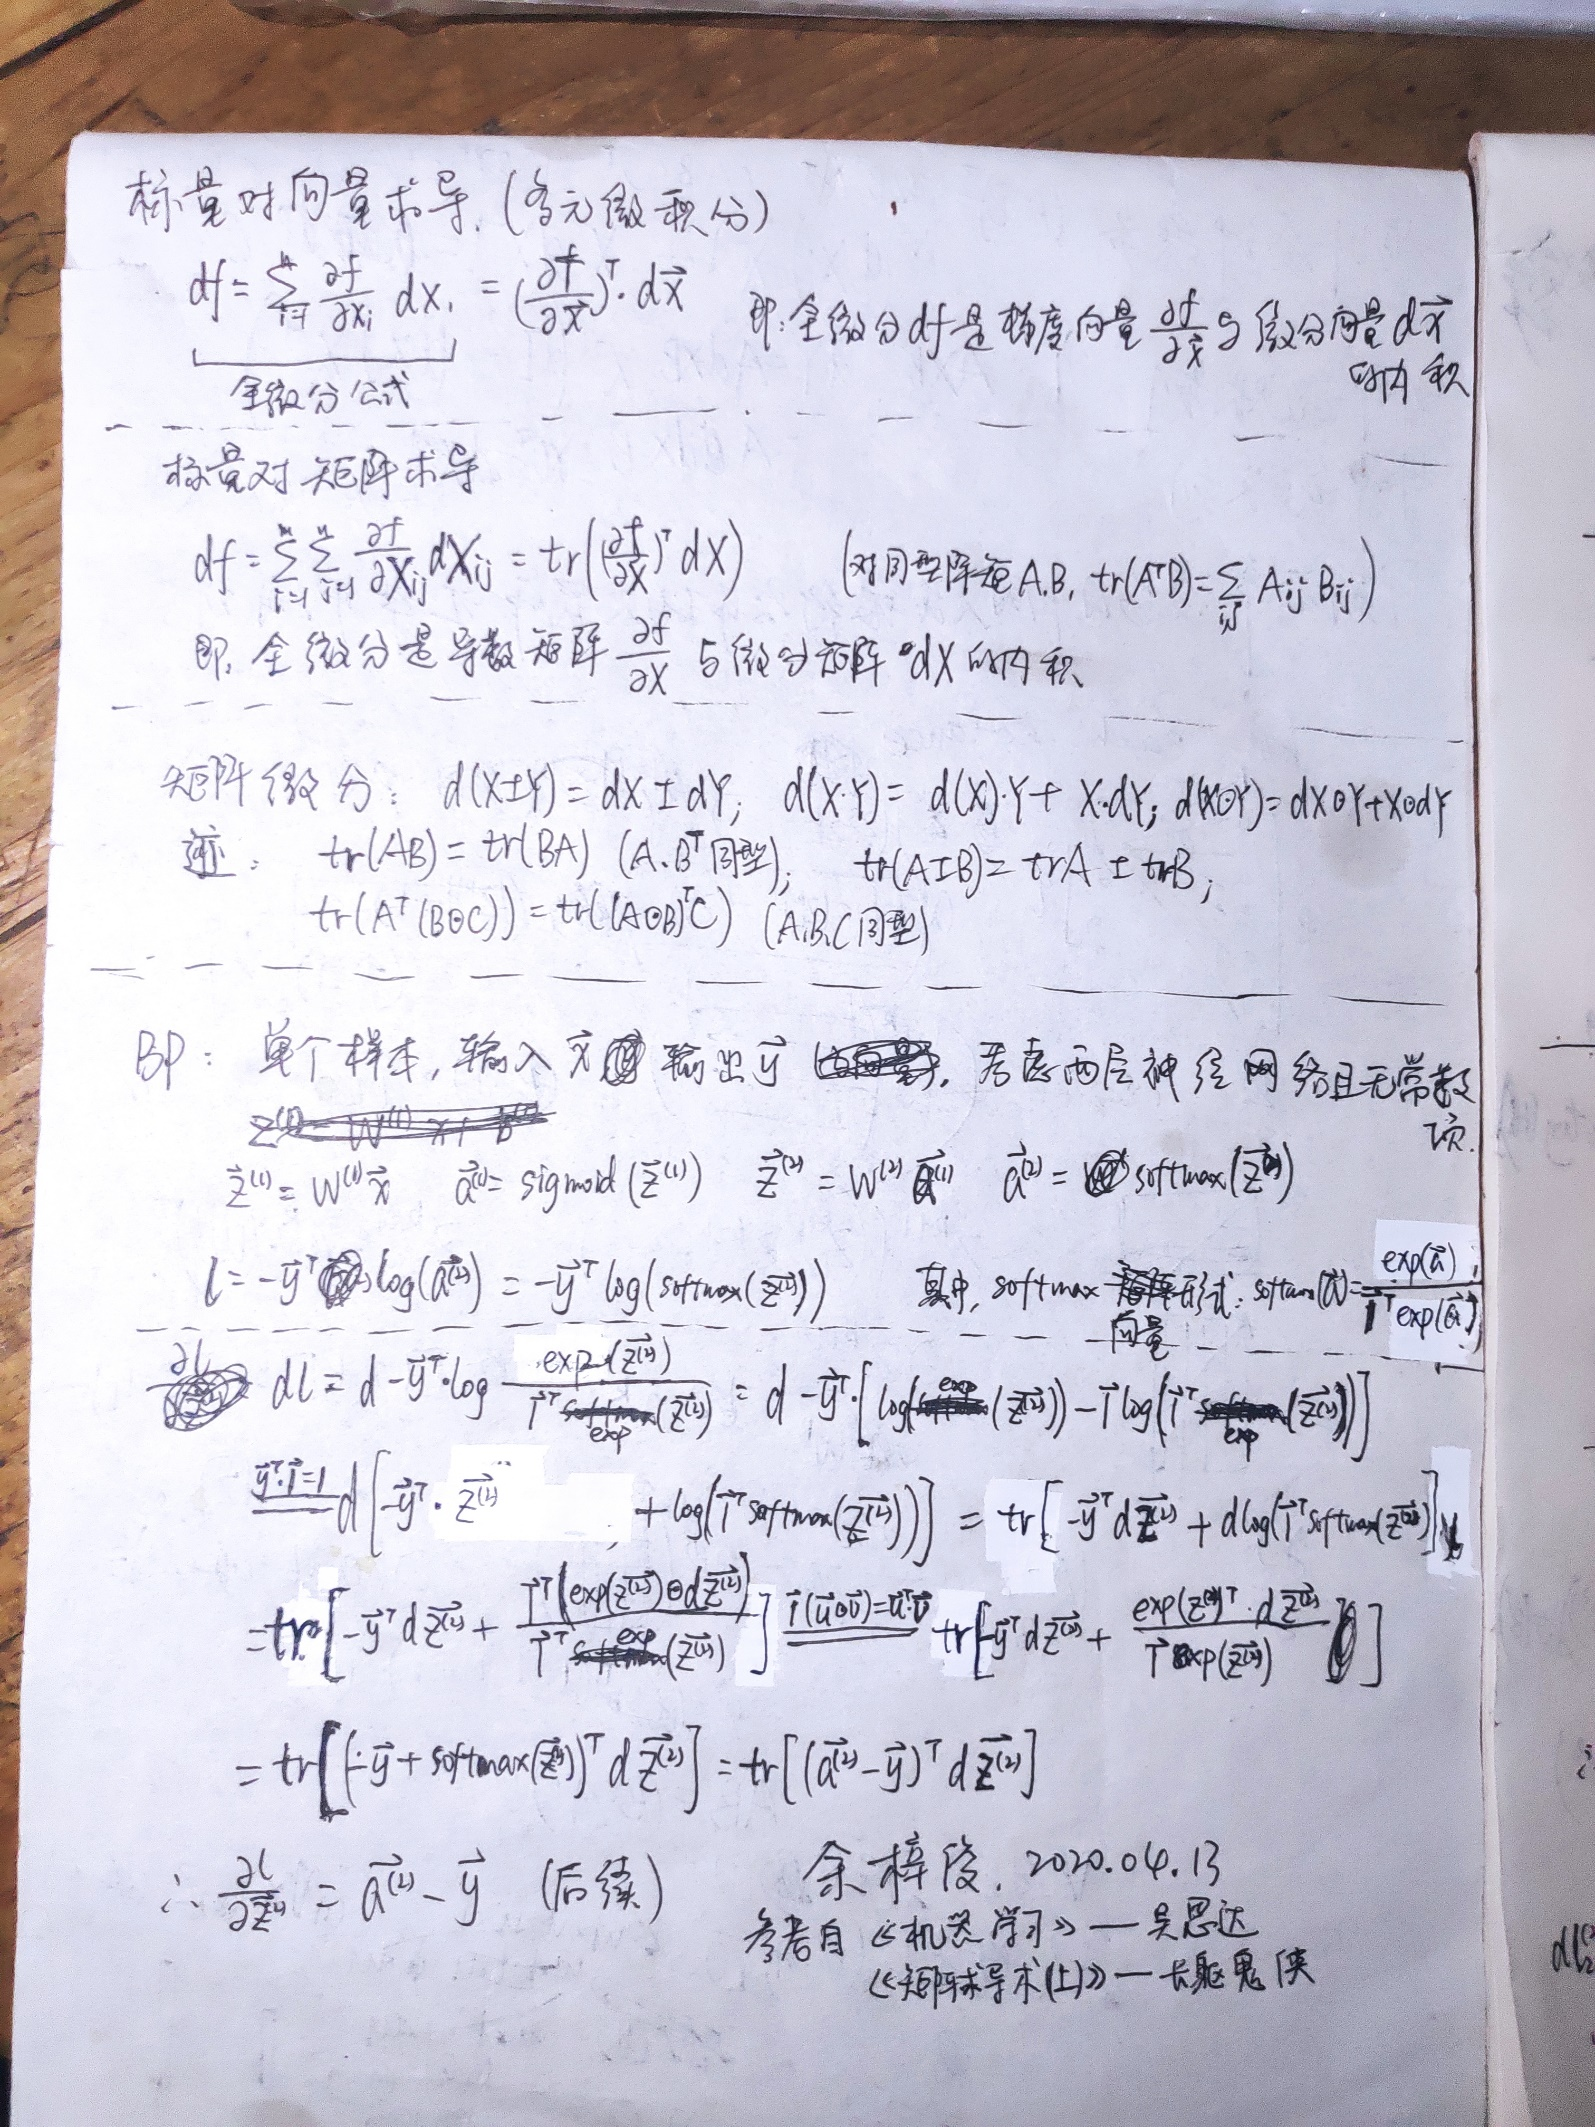 标量对向量求导.(多元微积分)
df = \sum_{i=1}^{n} \frac{∂f}{∂x_i} dx_i = (\frac{∂f}{∂\vec{x}})^T · d\vec{x} 即:全微分df是梯度向量\frac{∂f}{∂\vec{x}}与微分向量d\vec{x}
的内积
全微分公式
标量对矩阵求导
df = \sum_{i=1}^{m} \sum_{j=1}^{n} \frac{∂f}{∂X_{ij}} dX_{ij} = tr((\frac{∂f}{∂X})^T dX) (对同型矩阵A.B, tr(A^TB) = \sum_{i,j} A_{ij} B_{ij})
即,全微分是导数矩阵\frac{∂f}{∂X}与微分矩阵dX的内积
矩阵微分: d(X±Y) = dX ± dY; d(X·Y) = d(X)·Y + X·dY; d(X⊙Y) = dX⊙Y+X⊙dY
迹: tr(AB) = tr(BA) (A.B^T同型); tr(A±B) = trA ± trB;
tr(A^T(B⊙C)) = tr((A⊙B)^TC) (A,B,C同型)
BP: 单个样本,输入\vec{x} 输出\vec{y} , 考虑两层神经网络且无常数
项.
\vec{z}^{(1)} = W^{(1)}\vec{x} \vec{a}^{(1)} = sigmoid(\vec{z}^{(1)}) \vec{z}^{(2)} = W^{(2)}\vec{a}^{(1)} \vec{a}^{(2)} = softmax(\vec{z}^{(2)})
l = -\vec{y}^T log(\vec{a}^{(2)}) = -\vec{y}^T log(softmax(\vec{z}^{(2)})) 其中, softmax向量形式: softmax(\vec{a}) = \frac{exp(\vec{a})}{\vec{1}^T exp(\vec{a})}
dl = d -\vec{y}^T·log \frac{exp(\vec{z}^{(2)})}{\vec{1}^T exp(\vec{z}^{(2)})} = d -\vec{y}^T·[log(exp(\vec{z}^{(2)})) - \vec{1} log(\vec{1}^T exp(\vec{z}^{(2)}))]
\overset{\vec{y}^T·\vec{1}=1}{=} d[-\vec{y}^T·\vec{z}^{(2)} + log(\vec{1}^T softmax(\vec{z}^{(2)}))] = tr[-\vec{y}^T d\vec{z}^{(2)} + dlog(\vec{1}^T softmax(\vec{z}^{(2)}))]
= tr[-\vec{y}^T d\vec{z}^{(2)} + \frac{\vec{1}^T(exp(\vec{z}^{(2)})⊙d\vec{z}^{(2)})}{\vec{1}^T exp(\vec{z}^{(2)})}] \overset{\vec{1}(\vec{u}⊙\vec{v})=\vec{u}^T·\vec{v}}{=} tr[-\vec{y}^T d\vec{z}^{(2)} + \frac{exp(z^{(2)})^T·d\vec{z}^{(2)}}{\vec{1}^T exp(\vec{z}^{(2)})}]
= tr[(-\vec{y} + softmax(\vec{z}^{(2)}))^T d\vec{z}^{(2)}] = tr[(\vec{a}^{(2)} - \vec{y})^T d\vec{z}^{(2)}]
∴ \frac{∂l}{∂\vec{z}^{(2)}} = \vec{a}^{(2)} - \vec{y} (后续)
余梓俊. 2020.04.13
参考自《机器学习》—吴恩达
《矩阵求导术(上)》—长躯鬼侠